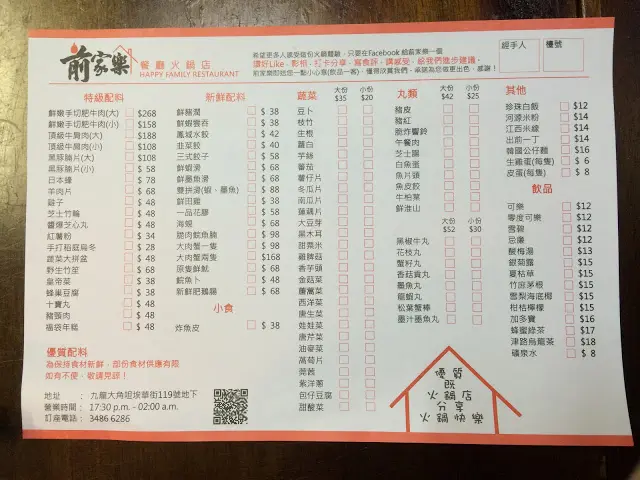 前家樂
餐廳火鍋店
HAPPY FAMILY RESTAURANT
希望更多人感受這份火鍋體驗，只要在Facebook 給前家樂一個
讚好Like、影相、打卡分享、寫食評、講感受，給我們進步建議，
前家樂即送您一點小心意(飲品一客)，懂得欣賞我們，承諾為您做更出色，感謝！
經手人
檯號
特級配料
鮮嫩手切肥牛肉(大) $268
鮮嫩手切肥牛肉(小) $158
頂級牛肩肉(大) $188
頂級牛肩肉(小) $108
黑豚腩片(大) $108
黑豚腩片(小) $ 58
日本蠔 $ 78
羊肉片 $ 68
$ 48
芝士竹輪 $ 48
醬爆芝心丸 $ 48
紅薯粉 $ 34
手打稻庭烏冬 $ 28
蔬菜大拼盆 $ 48
野生竹笙 $ 68
皇帝菜 $ 38
蜂巢豆腐 $ 38
十寶丸 $ 48
豬頸肉 $ 48
福袋年糕 $ 48
新鮮配料
鮮豬潤 $ 38
鮮蝦雲吞 $ 38
鳳城水餃 $ 42
韮菜餃 $ 40
三式餃子 $ 58
鮮蝦滑 $ 68
鮮墨魚滑 $ 68
雙拼滑(蝦、墨魚) $ 88
鮮田雞 $ 38
一品花膠 $ 58
海蜆 $ 68
脆肉鯇魚腩 $ 98
大肉蟹一隻 $ 98
大肉蟹兩隻 $168
原隻鮮魷 $ 68
鯇魚卜 $ 48
新鮮肥鵝腸 $ 68
小食
炸魚皮 $ 38
蔬菜
大份 $35
小份 $20
豆卜
枝竹
生根
蘿白
芋絲
蕃茄
薯仔片
冬瓜片
南瓜片
蓮藕片
大豆芽
黑木耳
甜粟米
雞脾菇
香芋頭
金菇菜
唐萵菜
西洋菜
唐生菜
娃娃菜
唐芹菜
油麥菜
萵筍片
茼茜
紫洋蔥
包仔豆腐
甜酸菜
丸類
大份 $42
小份 $25
豬皮
豬紅
脆炸響鈴
午餐肉
芝士腸
白魚蛋
魚片頭
魚皮餃
牛柏葉
鮮淮山
大份 $52
小份 $30
黑椒牛丸
花枝丸
蟹籽丸
香菇貢丸
墨魚丸
龍蝦丸
松葉蟹棒
墨汁墨魚丸
其他
珍珠白飯 $12
河源米粉 $14
江西米線 $14
出前一丁 $14
韓國公仔麵 $16
生雞蛋(每隻) $ 6
皮蛋(每隻) $ 8
飲品
可樂 $12
零度可樂 $12
雪碧 $12
忌廉 $12
酸梅湯 $13
銀菊露 $15
夏枯草 $15
竹庶茅根 $15
雪梨海底椰 $15
柑桔檸檬 $15
加多寶 $16
蜂蜜綠茶 $17
津路烏龍茶 $18
礦泉水 $ 8
優質配料
為保持食材新鮮，部份食材供應有限
如有不便，敬請見諒！
地址 ： 九龍大角咀埃華街119號地下
營業時間： 17:30 p.m. - 02:00 a.m.
訂座電話： 3486 6286
優質
既
火鍋店
分享
火鍋快樂